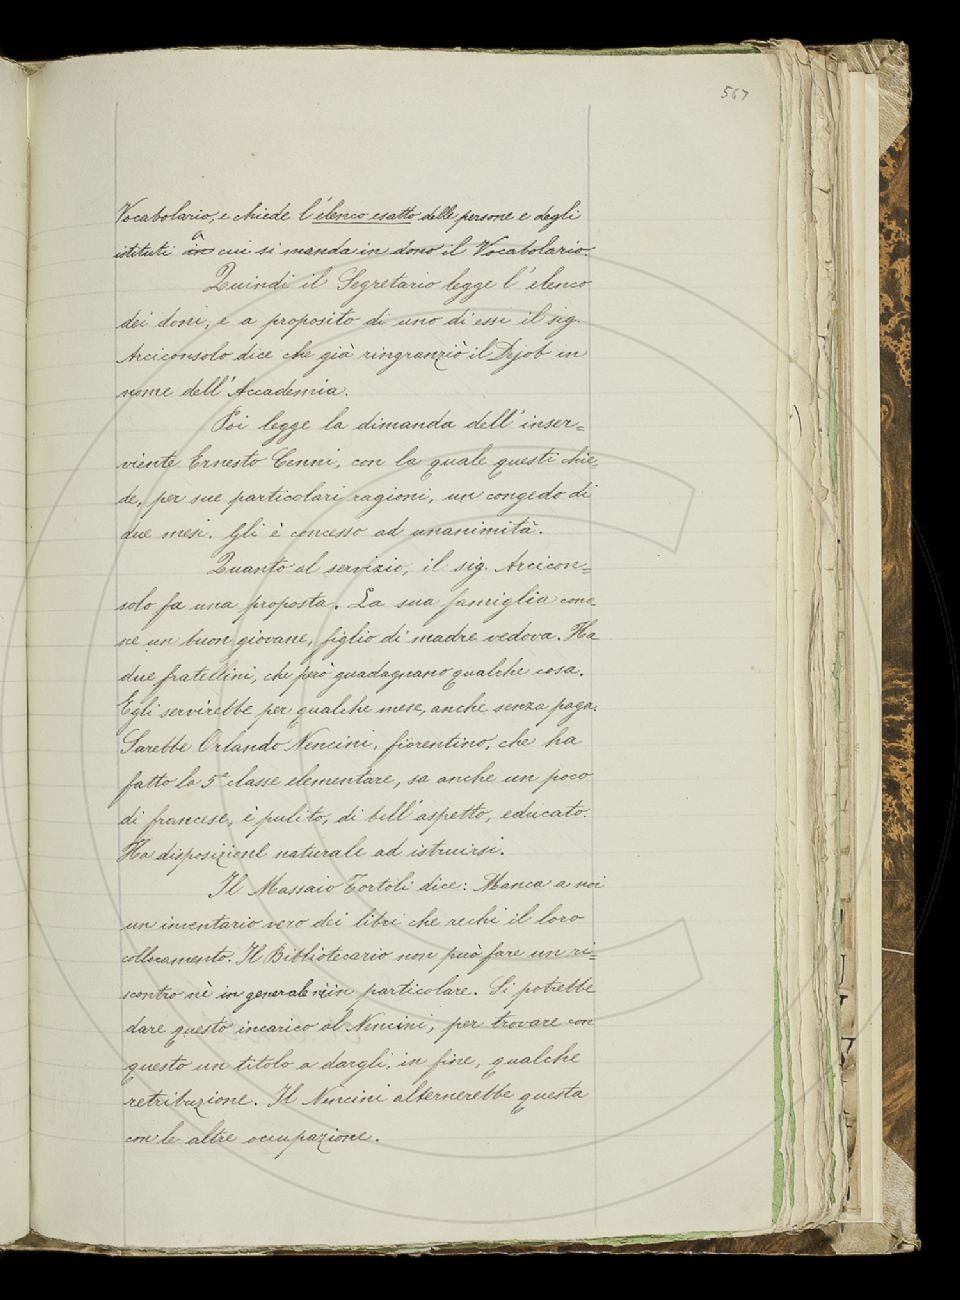 567
Vocabolario, e chiede l'elenco esatto delle persone e degli
istituti a cui si manda in dono il Vocabolario.
Quindi il Segretario legge l'elenco
dei doni, e a proposito di uno di essi il sig.
Arciconsolo dice che già ringranziò il Djob in
nome dell'Accademia.
Poi legge la dimanda dell'inser=
viente Ernesto Cenni, con la quale questi chie=
de, per sue particolari ragioni, un congedo di
due mesi. Gli è concesso ad unanimità.
Quanto al servizio, il sig. Arcicon=
solo fa una proposta. La sua famiglia cono=
ne un buon giovane, figlio di madre vedova. Ha
due fratellini, che però guadagnano qualche cosa.
Egli servirebbe per qualche mese, anche senza paga.
Sarebbe Orlando Nencini, fiorentino, che ha
fatto la 5ª classe elementare, sa anche un poco
di francese, è pulito, di bell'aspetto, educato.
Ha disposizione naturale ad istruirsi.
Il Massaio Tortoli dice: Manca a noi
un inventario vero dei libri che rechi il loro
collocamento. Il Bibliotecario non può fare un ri=
scontro nè in generale nè in particolare. Si potrebbe
dare questo incarico al Nencini, per trovare con
questo un titolo a dargli, in fine, qualche
retribuzione. Il Nencini alternerebbe questa
con le altre occupazione.